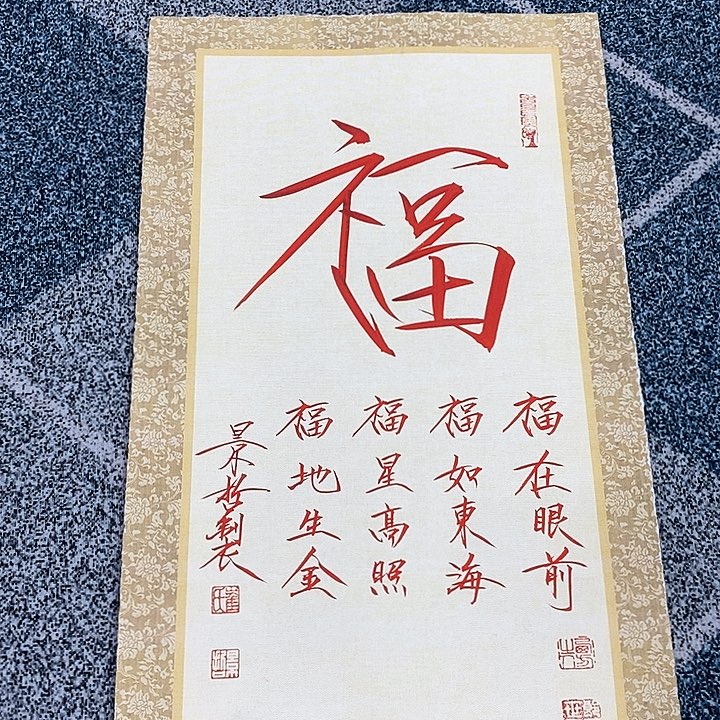 福
福在眼前
福如東海
福星高照
福地生金